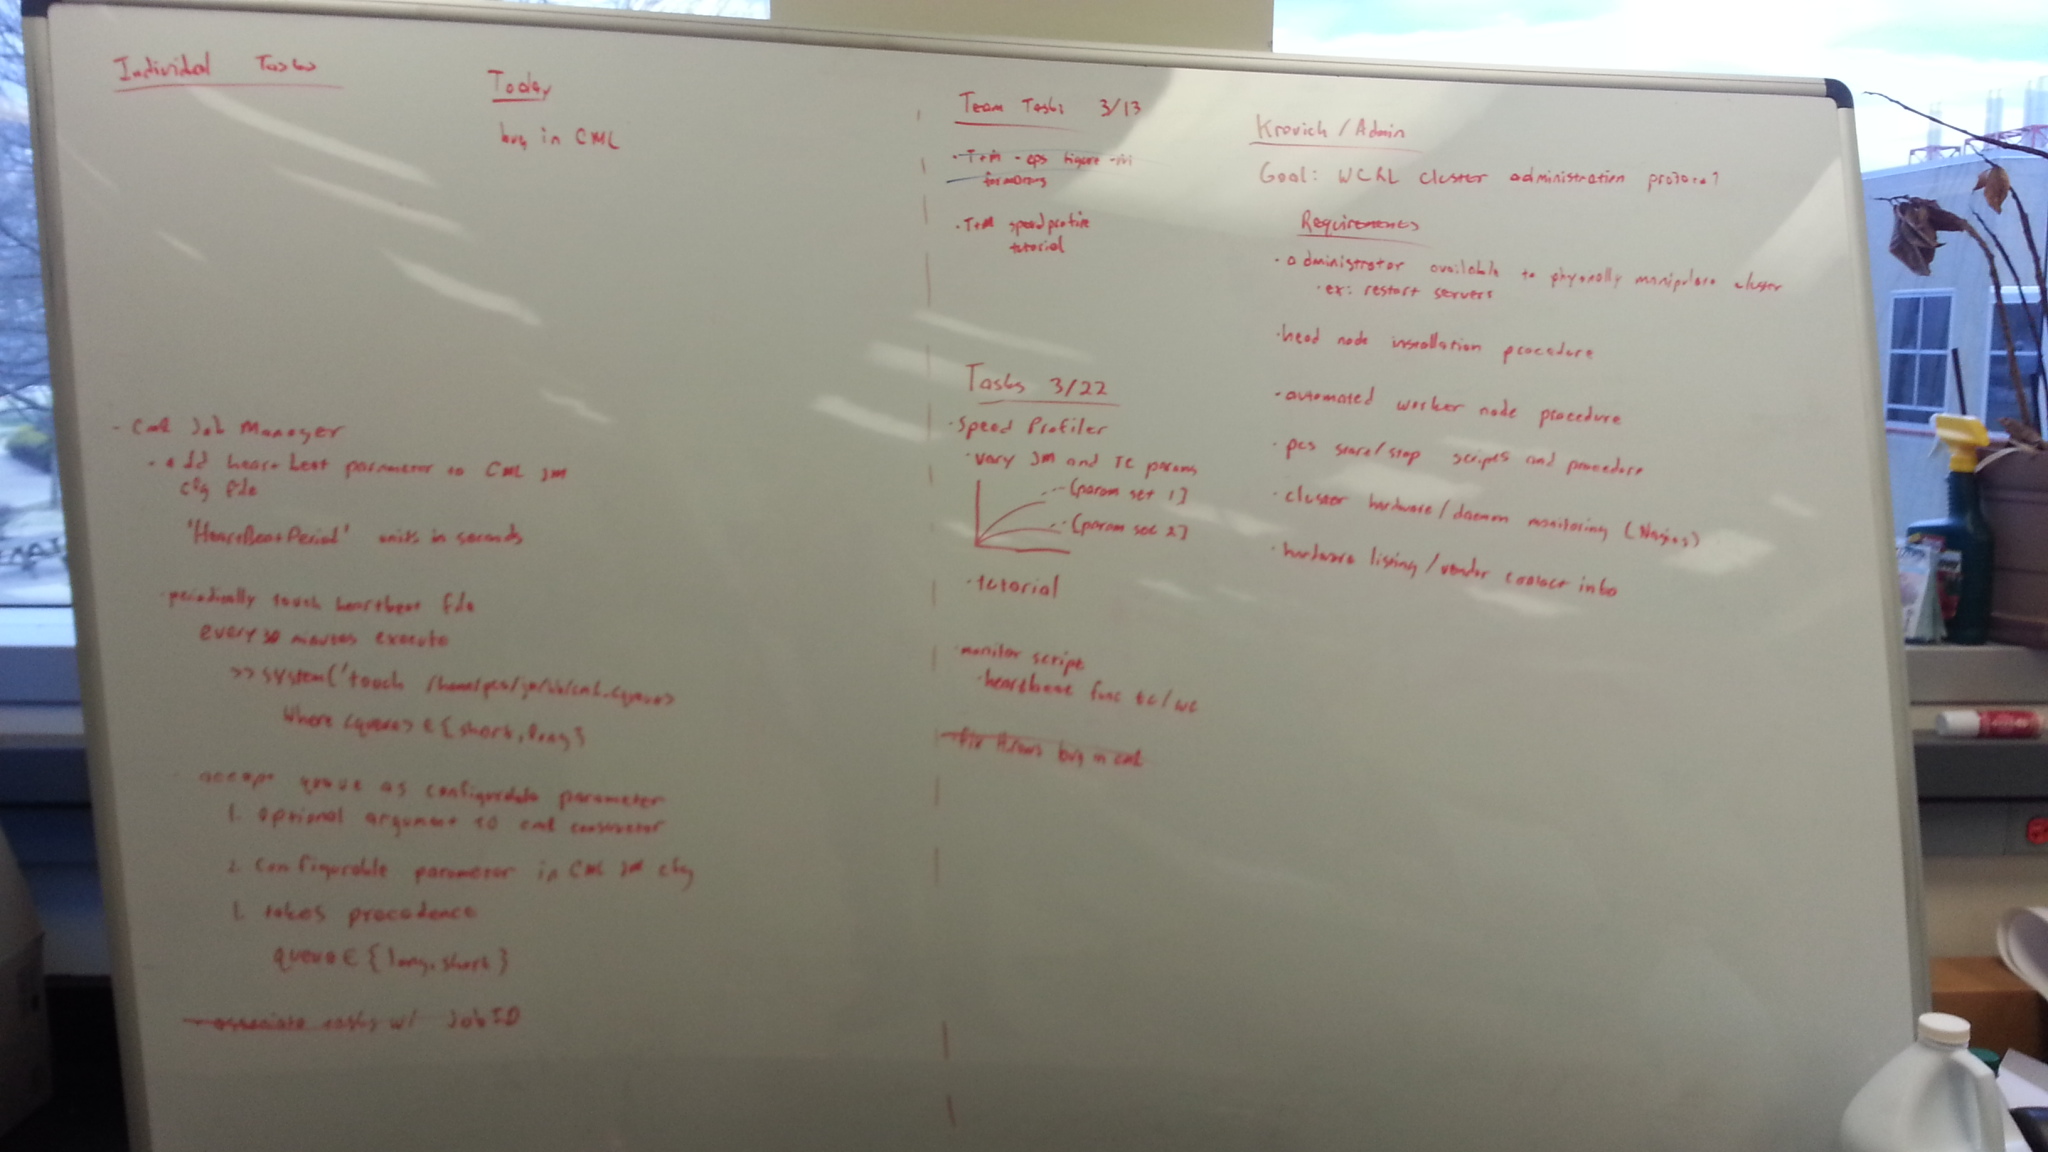 Individual Tasks
Today
bug in CML
- CML Job Manager
- add heartbeat parameter to CML JM
cfg file
'HeartBeatPeriod' units in seconds
- periodically touch heartbeat file
every 30 minutes execute
>> system('touch /home/pcs/jm/
Where <queue> ∈ {short, long}
accept queue as configurable parameter
1. optional argument to cml constructor
2. configurable parameter in CML JM cfg
1. takes precedence
queue ∈ {long, short}
- associate tasks w/ JobID
Team Tasks 3/13
· T+M - eps figure
formatting
· T+M speed profile
tutorial
Tasks 3/22
· Speed Profiler
· vary JM and TC params
[param set 1]
[param set 2]
· tutorial
· monitor script
· heartbeat func tc/wc
- fix bug in cml
Krovich / Admin
Goal: WCRL cluster administration protocol
Requirements
· administrator available to physically manipulate cluster
· ex: restart servers
· head node installation procedure
· automated worker node procedure
· pcs start/stop scripts and procedure
· cluster hardware/daemon monitoring (Nagios)
· hardware listing/vendor contact info